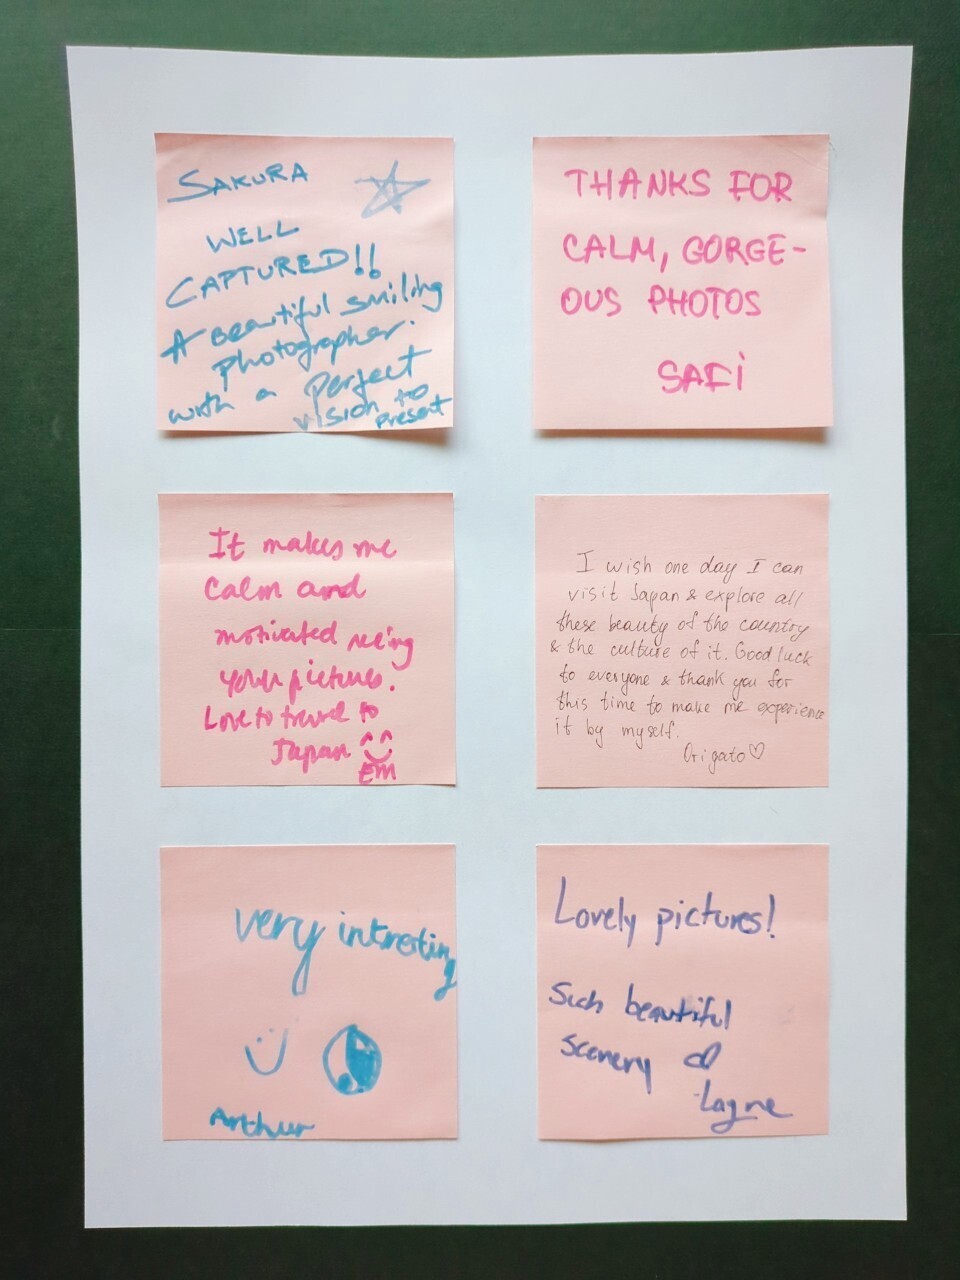 SAKURA
WELL
CAPTURED!!
A beautiful smiling
photographer.
with a perfect
vision to
present
THANKS FOR
CALM, GORGE-
OUS PHOTOS
SAFI
It makes me
calm and
motivated seeing
your pictures.
Love to travel to
Japan
Em
I wish one day I can
visit Japan & explore all
these beauty of the country
& the culture of it. Good luck
to everyone & thank you for
this time to make me experience
it by myself.
Origato♡
very intresting
Arthur
Lovely pictures!
Such beautiful
scenery ♡